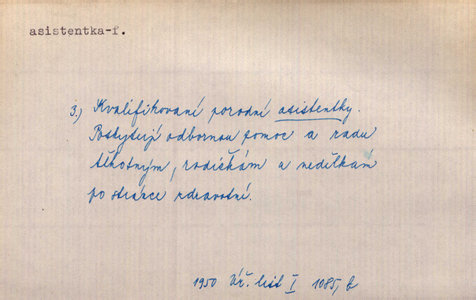 asistentka-f.
3.) Kvalifikovaní porodní asistentky.
Poskytují odbornou pomoc a radu
těhotným, rodičkám a nedělkám
po stránce zdravotní.
1950 Úř. list I 1085, b